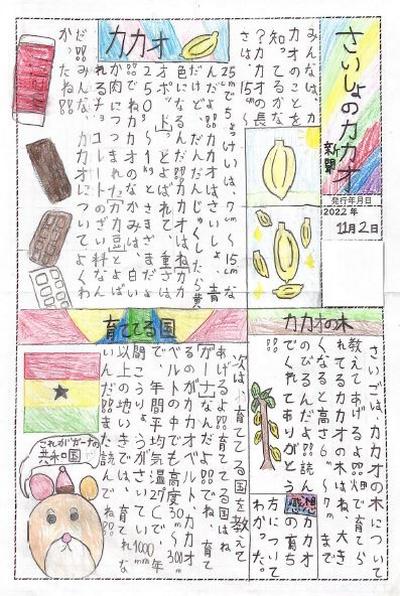 さいしょのカカオ
新聞
発行年月日
2022年
11月2日
カカオ
みんなは、カ
カオのことを
知ってるかな
?カカオの長
さは、15㎝〜
25㎝でちょっけいは、7㎝〜15㎝な
んだよ!!カカオはさいしょ、青
だけど、だんだんじゅくしたら黄
色になるんだ!!カカオはね「カカ
オポッド」とよばれて、重さは、
250g〜1kgとさまざまだよ
!!でねカカオのなかみは、白い
か肉につつまれた「カカオ豆」とよば
れるチョコレートのざい料なん
だ!!みんな、カカオについてよくわ
かったね!!
育ててる国
次は、育ててる国を教えて
あげるよ!!育ててる国はね
「ガーナ」なんだよ!!でね、育て
るのがカカオベルト、カカオ
ベルトの中でも高度30m〜300m
で、年間平均気温27℃で、年
間こうすいりょうがさいてい1000mm
以上の地いきでは、育てれな
いんだ!!また読んでね!!
これがガーナの
共和国
カカオの木
さいごは、カカオの木について
教えてあげるよ!!畑で育てら
れてるカカオの木はね、大き
くなると高さ6m〜7mまで
のびるんだよ!!読ん
でくれてありがとう
!!
感想
カカオ
の育ち
方について
わかった。